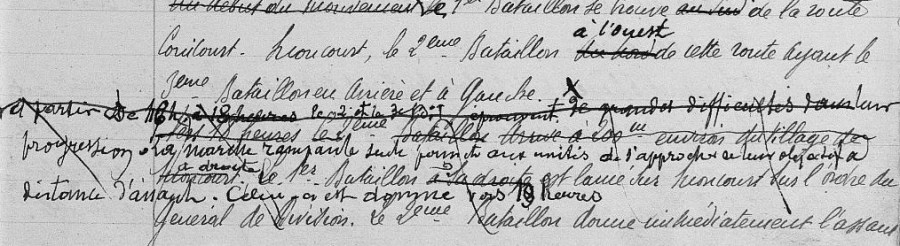 au début du mouvement le 1er Bataillon se trouve au Sud de la route
à l'ouest
Couicourt - Moncourt, le 2eme Bataillon au Nord de cette route ayant le
3eme Bataillon en arrière et à Gauche.
et partir de 16h à 18 heures le 2e et la 3e éprouvent de grandes difficultés dans leur
heures le Bataillon arrive à 200m environ du village de
progression. la marche rampante seule permet aux unités de s'approcher de leur objectif à
à droite
Moncourt le 1er Bataillon à sa droite est lancé sur Moncourt sur l'ordre du
distance d'assaut. Celui-ci est donné vers 18 heures
Général de Division. Le 2eme Bataillon donne immédiatement l'assaut